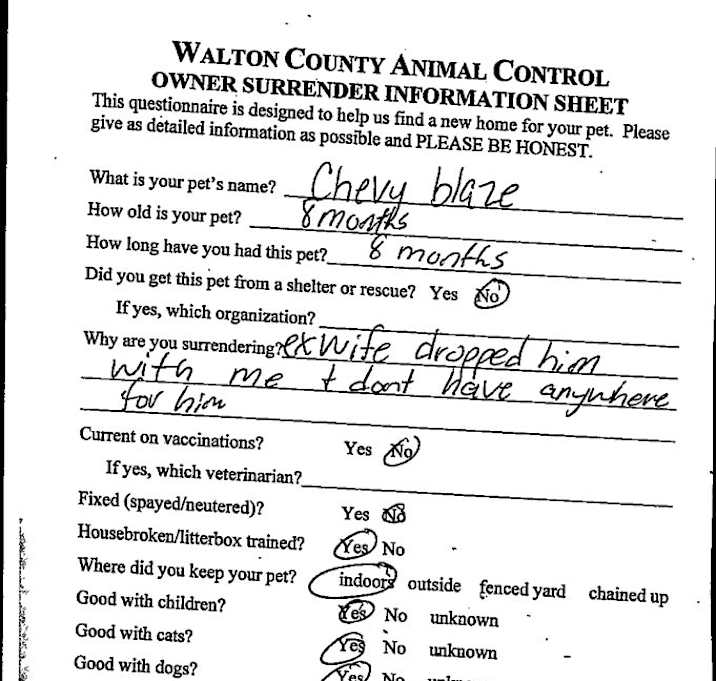 WALTON COUNTY ANIMAL CONTROL
OWNER SURRENDER INFORMATION SHEET
This questionnaire is designed to help us find a new home for your pet. Please
give as detailed information as possible and PLEASE BE HONEST.
What is your pet's name? Chevy blaze
How old is your pet? 8 months
How long have you had this pet? 8 months
Did you get this pet from a shelter or rescue? Yes No
If yes, which organization?
Why are you surrendering? exwife dropped him
with me + dont have anywhere
for him
Current on vaccinations? Yes No
If yes, which veterinarian?
Fixed (spayed/neutered)? Yes No
Housebroken/litterbox trained? Yes No
Where did you keep your pet? indoors outside fenced yard chained up
Good with children? Yes No unknown
Good with cats? Yes No unknown
Good with dogs? Yes No